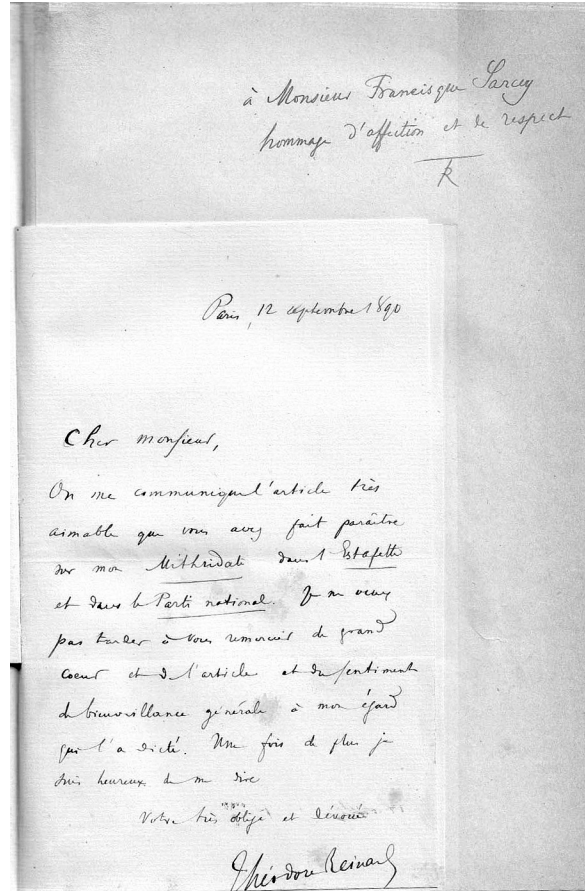 à Monsieur Francisque Sarcey
hommage d'affection et de respect
R
Paris, 12 septembre 1890
Cher monsieur,
On me communique l'article très
aimable que vous avez fait paraître
sur mon Mithridate dans l'Estafette
et dans le Parti national. Je ne veux
pas tarder à vous remercier de grand
coeur et de l'article et du sentiment
de bienveillance générale à mon égard
qui l'a dicté. Une fois de plus je
suis heureux de me dire
Votre très obligé et dévoué
Théodore Reinach